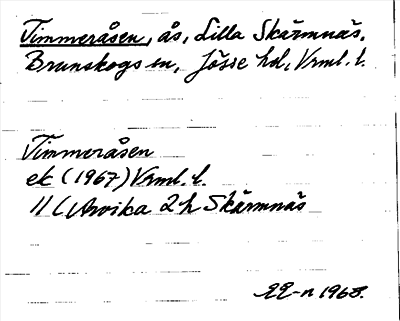 Timmeråsen, ås, Lilla Skärmnäs,
Brunskogs sn, Jösse hd, Vrml. l.
Timmeråsen
ek (1967) Vrml. l.
11 C Arvika 2 h Skärmnäs
1968.